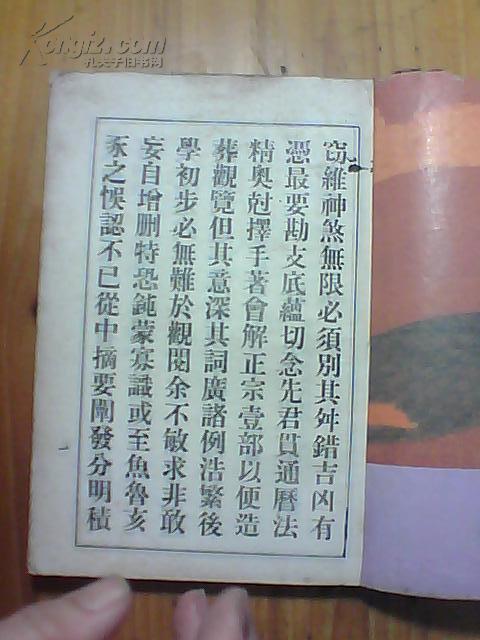 窃維神煞無限必須別其舛錯吉凶有
憑最要勘支底蘊切念先君貫通曆法
精奥尅擇手著會解正宗壹部以便造
葬觀覽但其意深其詞廣諸例浩繁後
學初步必無難於觀閱余不敏求非敢
妄自增删特恐鈍蒙寡識或至魚魯亥
豕之悞認不已從中摘要闡發分明積
Kongfz.com
孔夫子旧书网